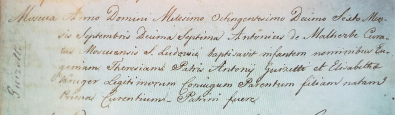 Moscua Anno Domini Milesimo Octingentesimo Decimo Sexto Men-
sis Septembris Decima Septima Antonius de Malherbe Cura-
tus Mocuensis S. Ludovici baptisavit infantem nominibus Eu-
geniam Theresiam Patris Antonij et Elisabetha
Legitimorum Conjugum Parentum filiam natam
Prima Currentium Patrini fuere